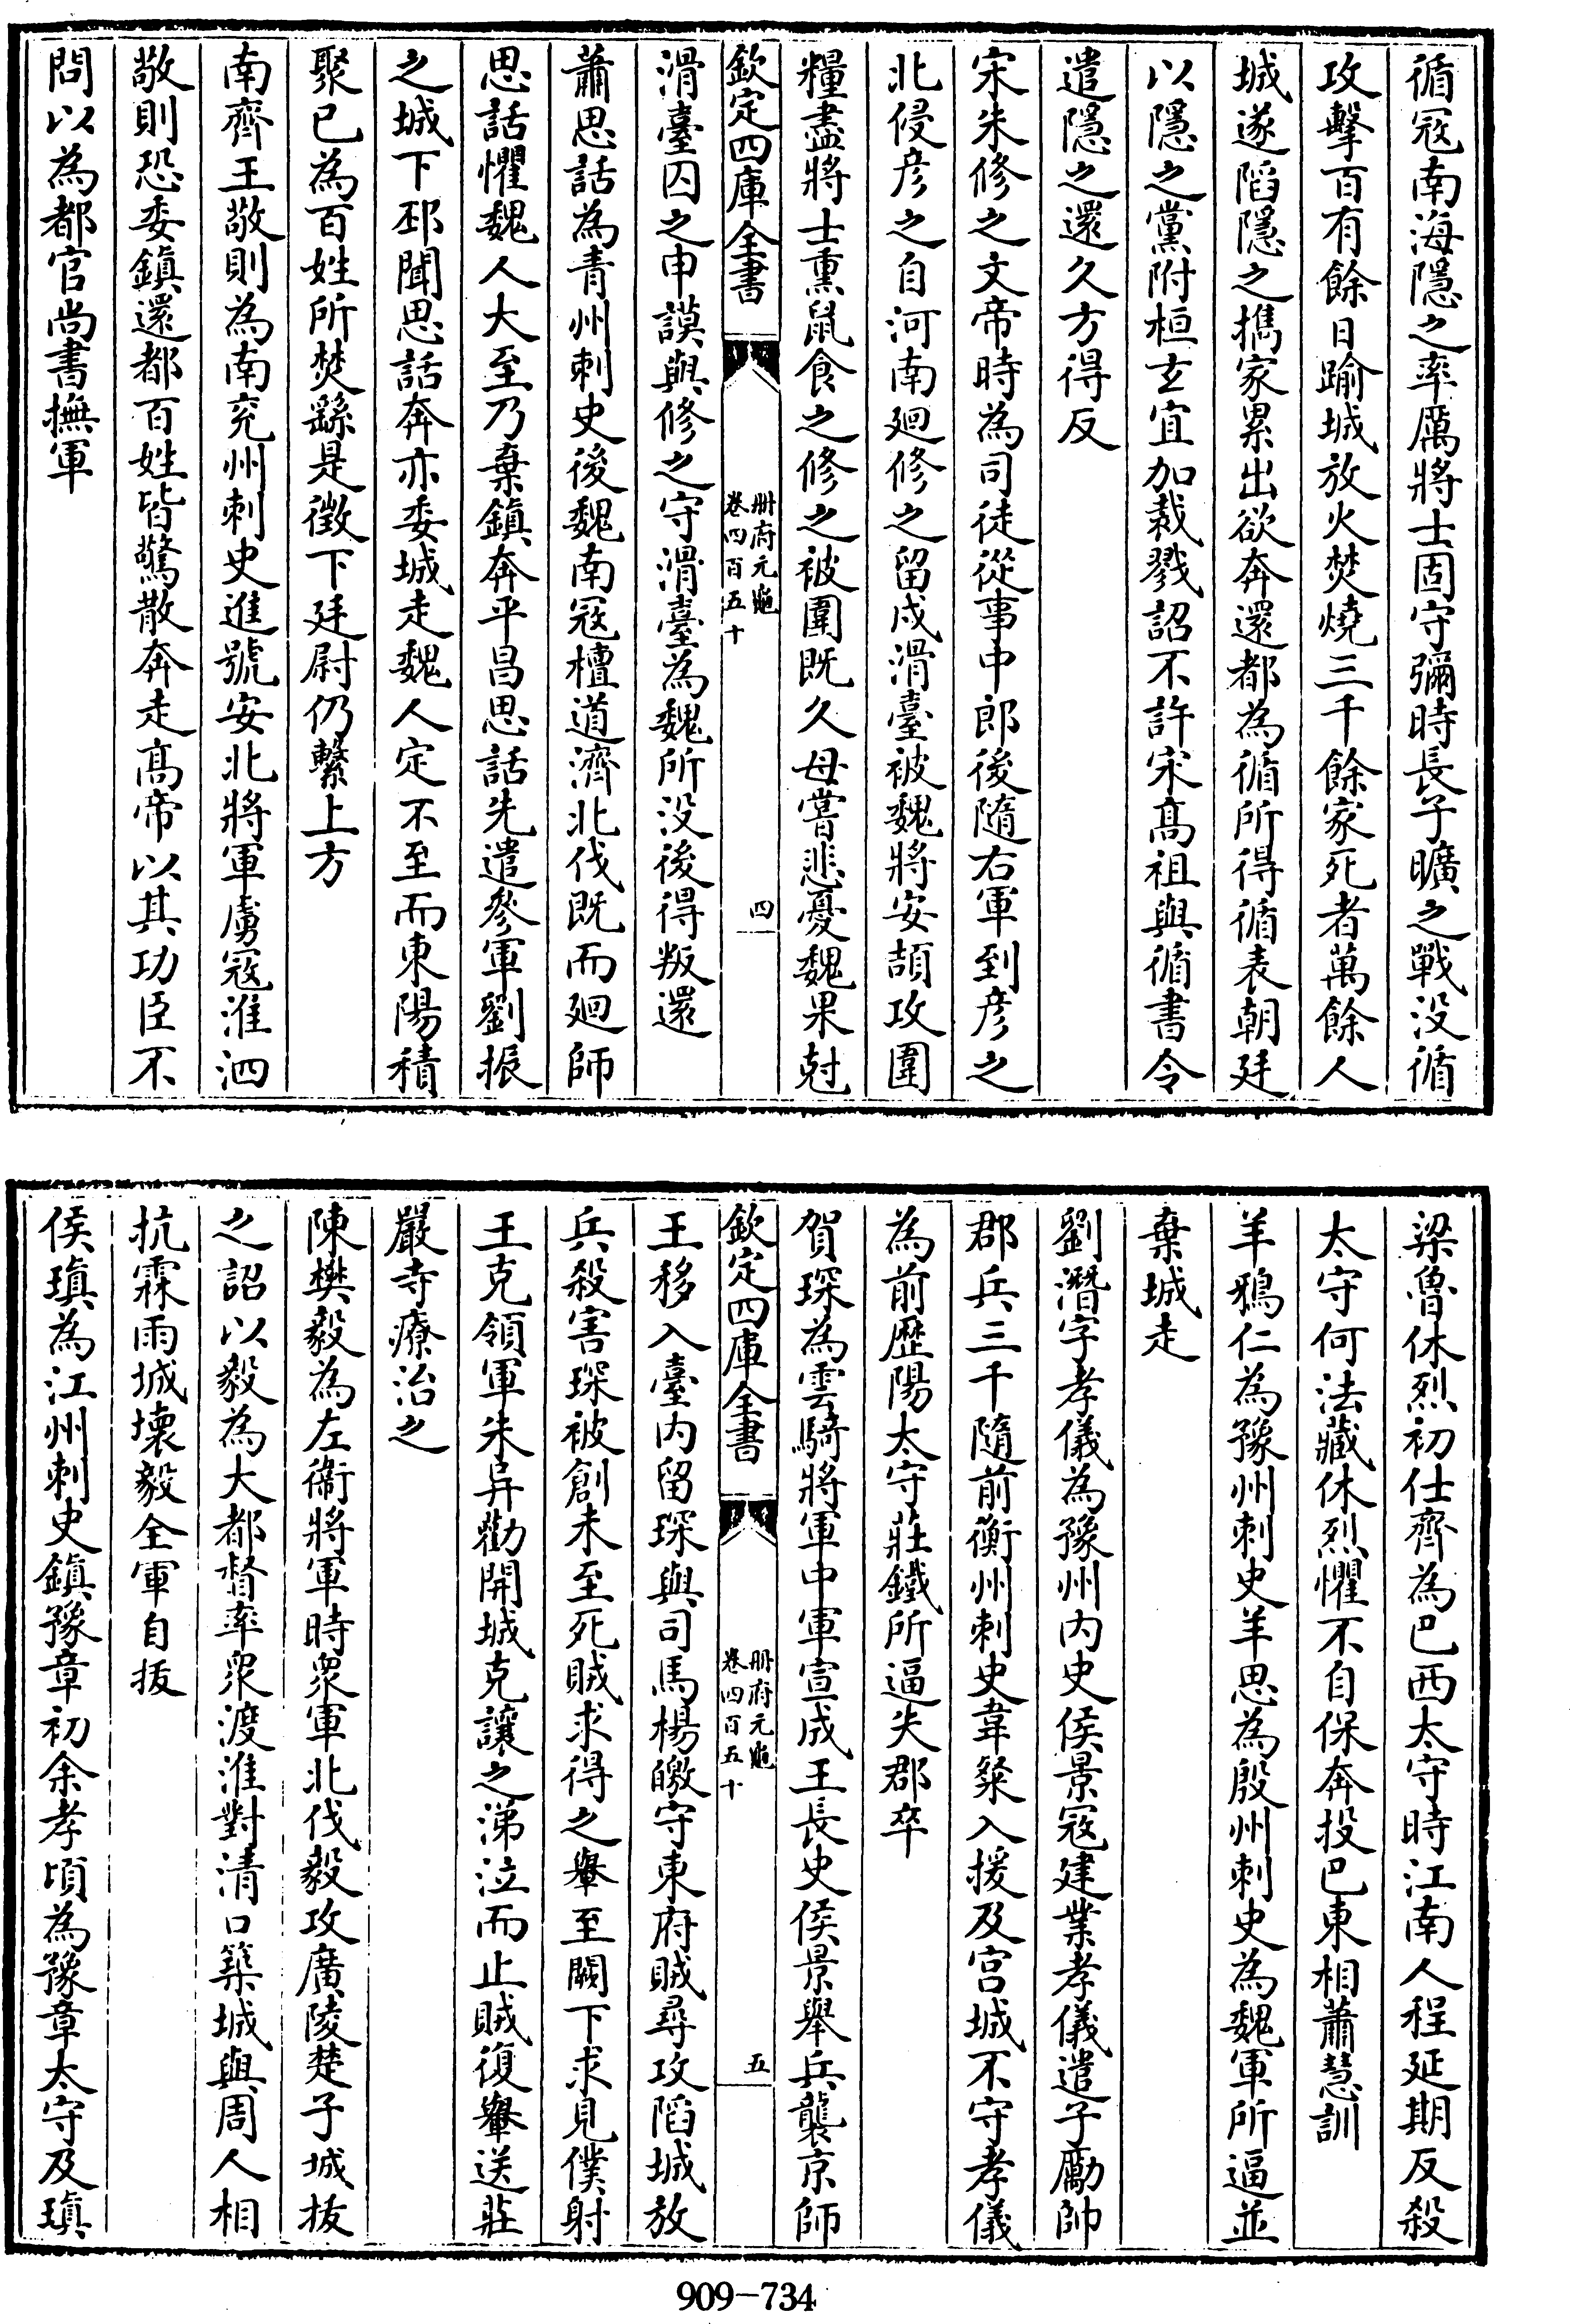 循冦南海隱之率厲將士固守彌時長子曠之戰没循
攻擊百有餘日踰城放火焚燒三千餘家死者萬餘人
城遂陷隱之攜家累出欲奔還都為循所得循表朝廷
以隱之黨附桓玄宜加裁戮詔不許宋髙祖與循書令
遣隱之還久方得反
宋朱修之文帝時為司徒從事中郎後隨右軍到彦之
北侵彦之自河南廻修之留戍滑臺被魏將安頡攻圍
糧盡將士熏鼠食之修之被圍既久母嘗悲憂魏果尅
欽定四庫全書
册府元龜
卷四百五十
四
滑臺囚之申謨與修之守滑臺為魏所没後得叛還
蕭思話為青州刺史後魏南冦檀道濟北伐既而廻師
思話懼魏人大至乃棄鎮奔平昌思話先遣參軍劉振
之城下邳聞思話奔亦委城走魏人定不至而東陽積
聚已為百姓所焚繇是徵下廷尉仍繫上方
南齊王敬則為南兖州刺史進號安北將軍虜冦淮泗
敬則恐委鎮還都百姓皆驚散奔走髙帝以其功臣不
問以為都官尚書撫軍
梁魯休烈初仕齊為巴西太守時江南人程延期反殺
太守何法藏休烈懼不自保奔投巴東相蕭慧訓
羊鴉仁為豫州刺史羊思為殷州刺史為魏軍所逼並
棄城走
劉潛字孝儀為豫州内史侯景冦建業孝儀遣子勵帥
郡兵三千隨前衡州刺史韋粲入援及宫城不守孝儀
為前歴陽太守莊鐵所逼失郡卒
賀琛為雲騎將軍中軍宣成王長史侯景舉兵襲京師
欽定四庫全書
册府元龜
卷四百五十
五
王移入臺内留琛與司馬楊皦守東府賊尋攻陷城放
兵殺害琛被創未至死賊求得之轝至闕下求見僕射
王克領軍朱异勸開城克讓之涕泣而止賊復轝送莊
嚴寺療治之
陳樊毅為左衞將軍時衆軍北伐毅攻廣陵楚子城拔
之詔以毅為大都督率衆渡淮對清口築城與周人相
抗霖雨城壞毅全軍自拔
侯瑱為江州刺史鎮豫章初余孝頃為豫章太守及瑱
909-734